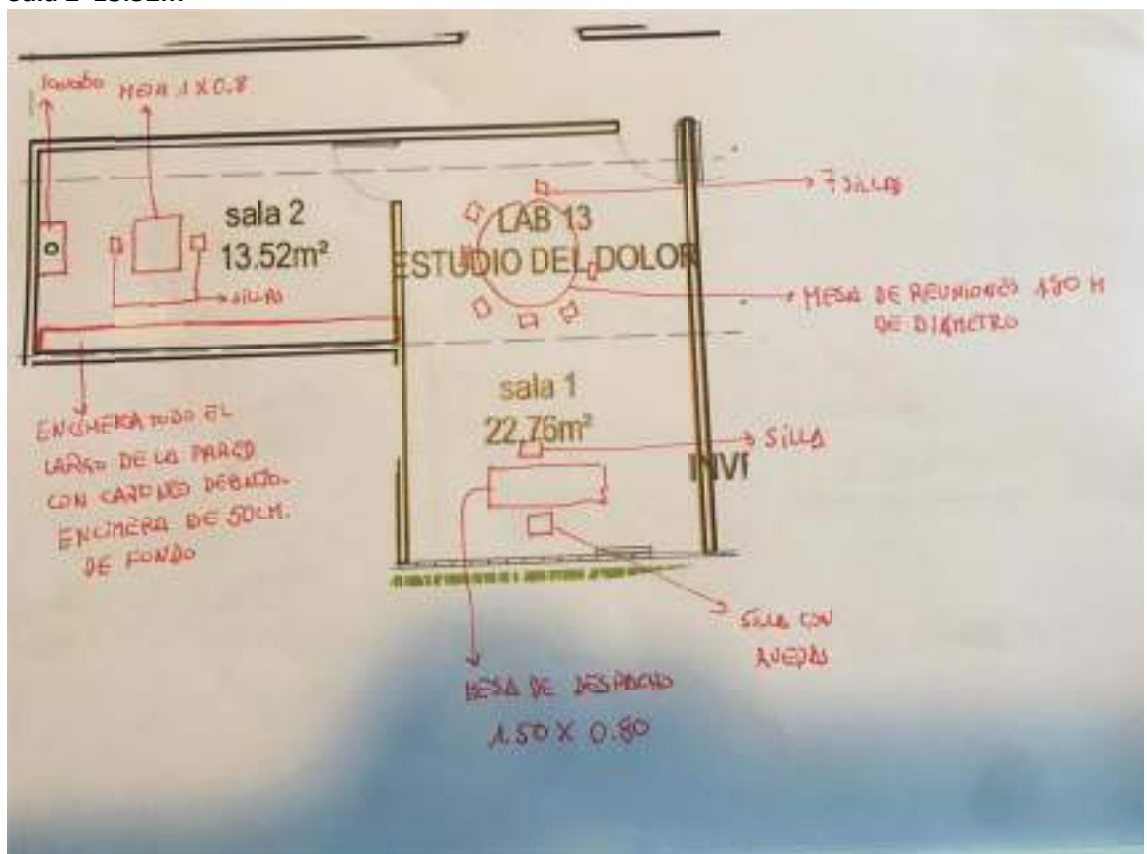 lavabo
MESA 1 X 0.8
sala 2
13.52m²
SILLAS
7 SILLAS
LAB 13
ESTUDIO DEL DOLOR
MESA DE REUNIONES M
DE DIAMETRO
ENCIMERA TODO EL
LARGO DE LA PARED
CON CAJONES DEBAJO.
ENCIMERA DE 50CM.
DE FONDO
sala 1
22.76m²
SILLA
INVE
SILLA CON
RUEDAS
MESA DE DESPACHO
1.50 X 0.80